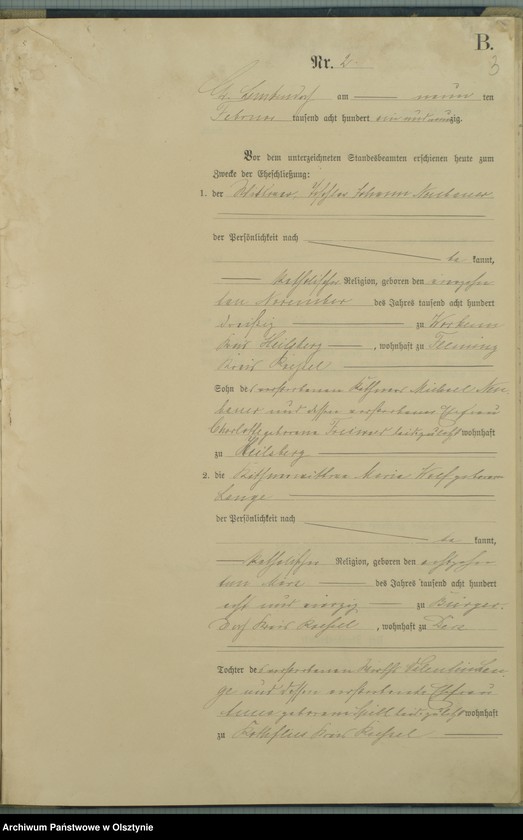 B.
3
Nr. 2
am neun ten
Februar tausend acht hundert ein und neunzig.
Vor dem unterzeichneten Standesbeamten erschienen heute zum
Zwecke der Eheschließung:
1. der Wittwer, Johann Neubauer
der Persönlichkeit nach
be kannt,
katholischer Religion, geboren den
ten November des Jahres tausend acht hundert
dreißig zu
Kreis Heilsberg, wohnhaft zu Fleming
Kreis Roessel
Sohn des verstorbenen Käthners Michael Neu-
bauer und dessen verstorbenen Ehefrau
Charlotte geborene zuletzt wohnhaft
zu Heilsberg
2. die Maria Wolf geborene
Lange
der Persönlichkeit nach
be kannt,
katholischer Religion, geboren den achtzehn
ten März des Jahres tausend acht hundert
acht und vierzig zu Bürger-
dorf Kreis Roessel, wohnhaft zu
Tochter des verstorbenen Wirths Valentin Lan-
ge und dessen verstorbene Ehefrau
Anna geborene zuletzt wohnhaft
zu Kreis Roessel
Archiwum Państwowe w Olsztynie